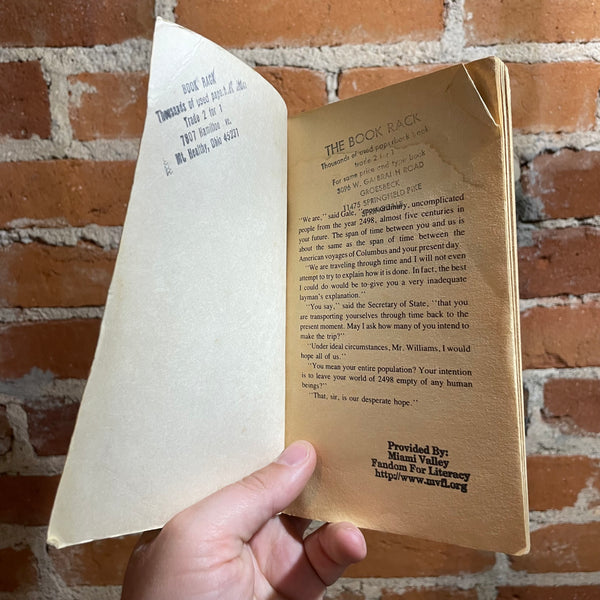 BOOK RACK
Thousands of used
Trade 2 for 1
7807 Hamilton
Mt. Healthy, Ohio 45231
THE BOOK RACK
Thousands of used paperback book
trade 2 for 1
For same price and type book
W. GALBRAITH ROAD
GROESBECK
11475 SPRINGFIELD PIKE
"We are," said Gale, ordinary, uncomplicated
people from the year 2498, almost five centuries in
your future. The span of time between you and us is
about the same as the span of time between the
American voyages of Columbus and your present day.
"We are traveling through time and I will not even
attempt to try to explain how it is done. In fact, the best
I could do would be to give you a very inadequate
layman's explanation."
"You say," said the Secretary of State, "that you
are transporting yourselves through time back to the
present moment. May I ask how many of you intend to
make the trip?"
"Under ideal circumstances, Mr. Williams, I would
hope all of us."
"You mean your entire population? Your intention
is to leave your world of 2498 empty of any human
beings?"
"That, sir, is our desperate hope."
Provided By:
Miami Valley
Fandom For Literacy
http://www.mvfl.org